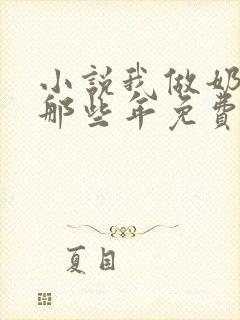 小説我做奶
那些年免費
夏目